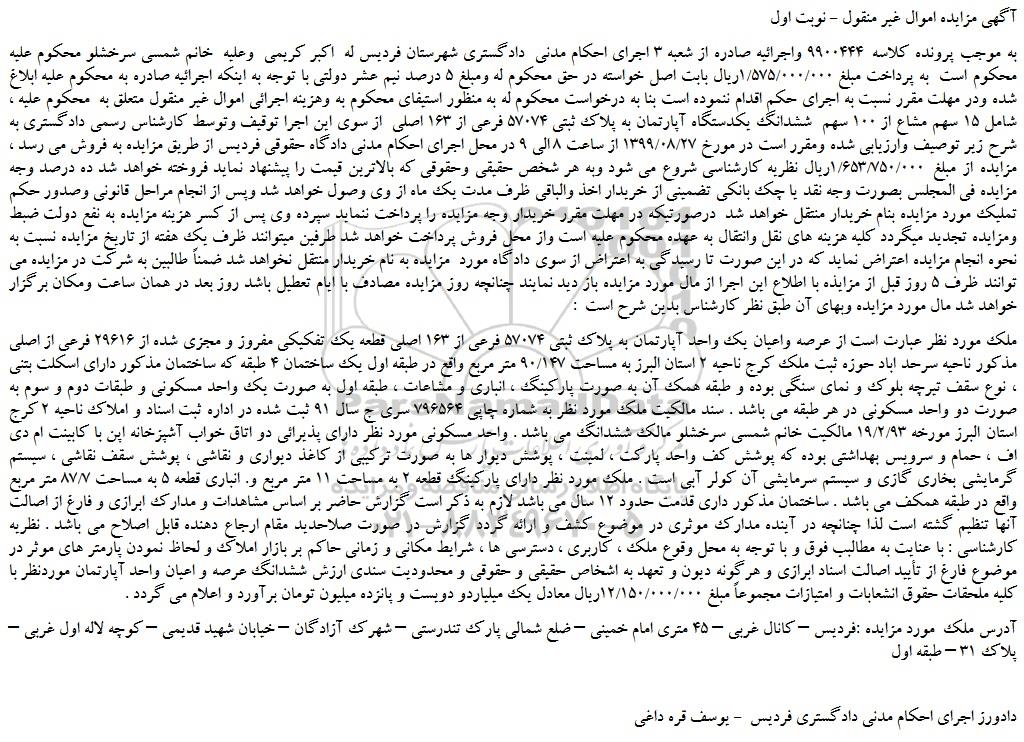 آگهی مزایده اموال غیر منقول – نوبت اول
به موجب پرونده کلاسه 9900444 واجرائیه صادره از شعبه 3 اجرای احکام مدنی دادگستری شهرستان فردیس له اکبر کریمی وعلیه خانم شمسی سرخشلو محکوم علیه
محکوم است به پرداخت مبلغ 1/575/000/000ریال بابت اصل خواسته در حق محکوم له ومبلغ 5 درصد نیم عشر دولتی با توجه به اینکه اجرائیه صادره به محکوم علیه ابلاغ
شده ودر مهلت مقرر نسبت به اجرای حکم اقدام ننموده است بنا به درخواست محکوم له به منظور استیفای محکوم به وهزینه اجرائی اموال غیر منقول متعلق به محکوم علیه ،
شامل 15 سهم مشاع از 100 سهم ششدانگ یکدستگاه آپارتمان به پلاک ثبتی 57074 فرعی از 163 اصلی از سوی این اجرا توقیف وتوسط کارشناس رسمی دادگستری به
شرح زیر توصیف وارزیابی شده ومقرر است در مورخ 1399/08/27 از ساعت 8 الی 9 در محل اجرای احکام مدنی دادگاه حقوقی فردیس از طریق مزایده به فروش می رسد ،
مزایده از مبلغ 1/653/750/000ریال نظریه کارشناسی شروع می شود وبه هر شخص حقیقی وحقوقی که بالاترین قیمت را پیشنهاد نماید فروخته خواهد شد ده درصد وجه
مزایده فی المجلس بصورت وجه نقد یا چک بانکی تضمینی از خریدار اخذ والباقی ظرف مدت یک ماه از وی وصول خواهد شد وپس از انجام مراحل قانونی وصدور حکم
تملیک مورد مزایده بنام خریدار منتقل خواهد شد درصورتیکه در مهلت مقرر خریدار وجه مزایده را پرداخت ننماید سپرده وی پس از کسر هزینه مزایده به نفع دولت ضبط
ومزایده تجدید میگردد کلیه هزینه های نقل وانتقال به عهده محکوم علیه است واز محل فروش پرداخت خواهد شد طرفین میتوانند ظرف یک هفته از تاریخ مزایده نسبت به
نحوه انجام مزایده اعتراض نماید که در این صورت تا رسیدگی به اعتراض از سوی دادگاه مورد مزایده به نام خریدار منتقل نخواهد شد ضمناً طالبین به شرکت در مزایده می
توانند ظرف 5 روز قبل از مزایده با اطلاع این اجرا از مال مورد مزایده باز دید نمایند چنانچه روز مزایده مصادف با ایام تعطیل باشد روز بعد در همان ساعت ومکان برگزار
خواهد شد مال مورد مزایده وبهای آن طبق نظر کارشناس بدین شرح است :
ملک مورد نظر عبارت است از عرصه واعیان یک واحد آپارتمان به پلاک ثبتی 57074 فرعی از 163 اصلی قطعه یک تفکیکی مفروز و مجزی شده از 29616 فرعی از اصلی
مذکور ناحیه سرحد اباد حوزه ثبت ملک کرج ناحیه 2 استان البرز به مساحت 90/147 متر مربع واقع در طبقه اول یک ساختمان 4 طبقه که ساختمان مذکور دارای اسکلت بتنی
، نوع سقف تیرچه بلوک و نمای سنگی بوده و طبقه همک آن به صورت پارکینگ ، انباری و مشاعات ، طبقه اول به صورت یک واحد مسکونی و طبقات دوم و سوم به
صورت دو واحد مسکونی در هر طبقه می باشد . سند مالکیت ملک مورد نظر به شماره چاپی 796564 سری ج سال 91 ثبت شده در اداره ثبت اسناد و املاک ناحیه 2 کرج
استان البرز مورخه 19/2/93 مالکیت خانم شمسی سرخشلو مالک ششدانگ می باشد . واحد مسکونی مورد نظر دارای پذیرائی دو اتاق خواب آشپزخانه اپن با کابینت ام دی
اف ، حمام و سرویس بهداشتی بوده که پوشش کف واحد پارکت ، لمینت ، پوشش دیوار ها به صورت ترکیبی از کاغذ دیواری و نقاشی ، پوشش سقف نقاشی ، سیستم
گرمایشی بخاری گازی و سیستم سرمایشی آن کولر آبی است . ملک مورد نظر دارای پارکینگ قطعه 2 به مساحت 11 متر مربع و. انباری قطعه 5 به مساحت 87/7 متر مربع
واقع در طبقه همکف می باشد . ساختمان مذکور داری قدمت حدود 12 سال می باشد لازم به ذکر است گزارش حاضر بر اساس مشاهدات و مدارک ابرازی و فارغ از اصالت
آنها تنظیم گشته است لذا چنانچه در آینده مدارک موثری در موضوع کشف و ارائه گردد گزارش در صورت صلاحدید مقام ارجاع دهنده قابل اصلاح می باشد . نظریه
کارشناسی : با عنایت به مطالب فوق و با توجه به محل وقوع ملک ، کاربری ، دسترسی ها ، شرایط مکانی و زمانی حاکم بر بازار املاک و لحاظ نمودن پارمتر های موثر در
موضوع فارغ از تأیید اصالت اسناد ابرازی و هرگونه دیون و تعهد به اشخاص حقیقی و حقوقی و محدودیت سندی ارزش ششدانگ عرصه و اعیان واحد آپارتمان موردنظر با
کلیه ملحقات حقوق انشعابات و امتیازات مجموعاً مبلغ 12/150/000/000ریال معادل یک میلیاردو دویست و پانزده میلیون تومان برآورد و اعلام می گردد .
آدرس ملک مورد مزایده :فردیس – کانال غربی – 45 متری امام خمینی – ضلع شمالی پارک تندرستی – شهرک آزادگان – خیابان شهید قدیمی – کوچه لاله اول غربی –
پلاک 31 – طبقه اول
دادورز اجرای احکام مدنی دادگستری فردیس - یوسف قره داغی